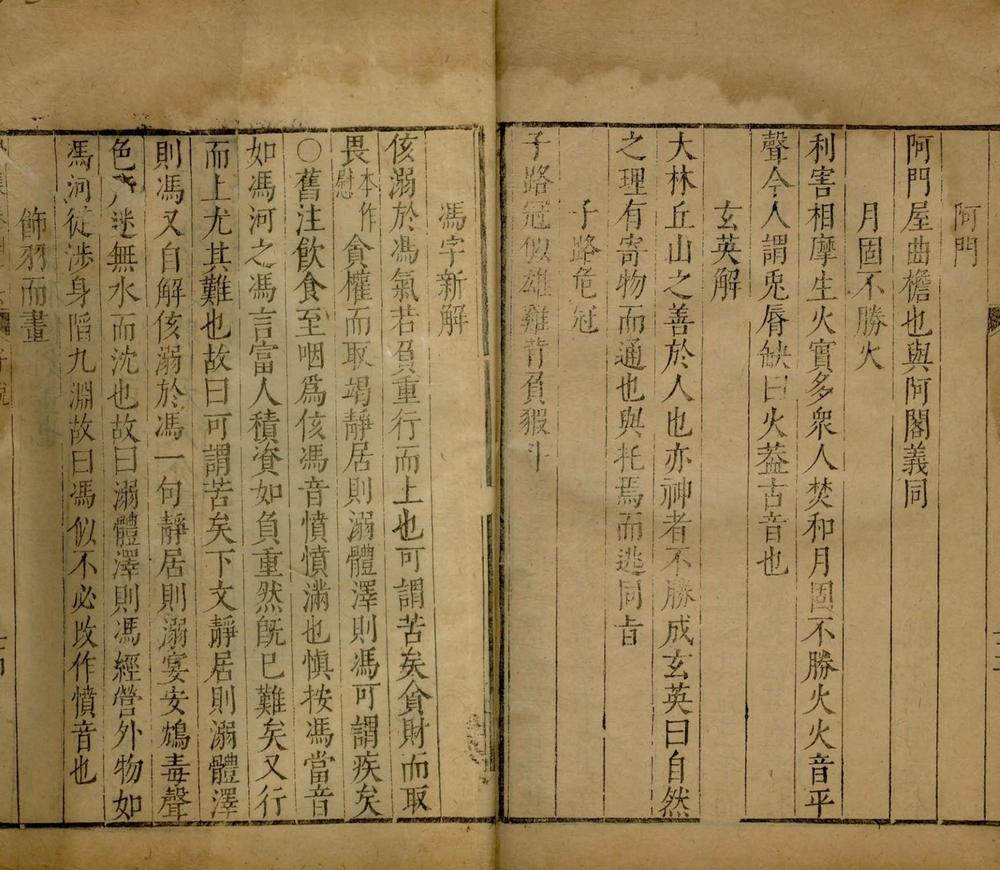 阿門
阿門屋曲檐也與阿閣義同
月固不勝火
利害相摩生火實多衆人焚和月固不勝火火音平
聲今人謂兎脣缺曰火葢古音也
玄英解
大林丘山之善於人也亦神者不勝成玄英曰自然
之理有寄物而通也與托焉而逃同旨
子路危冠
子路冠似雄雞背負猳斗
馮字新解
侅溺於馮氣若負重行而上也可謂苦矣貪財而取
畏本作慰貪權而取竭靜居則溺體澤則馮可謂疾矣
○舊注飲食至咽爲侅馮音憤憤滿也愼按馮當音
如馮河之馮言富人積資如負重然旣已難矣又行
而上尤其難也故曰可謂苦矣下文靜居則溺體澤
則馮又自解侅溺於馮一句靜居則溺宴安鴆毒聲
色迷無水而沈也故曰溺體澤則馮經營外物如
馮河徒涉身陷九淵故曰馮似不必改作憤音也
飾羽而畫